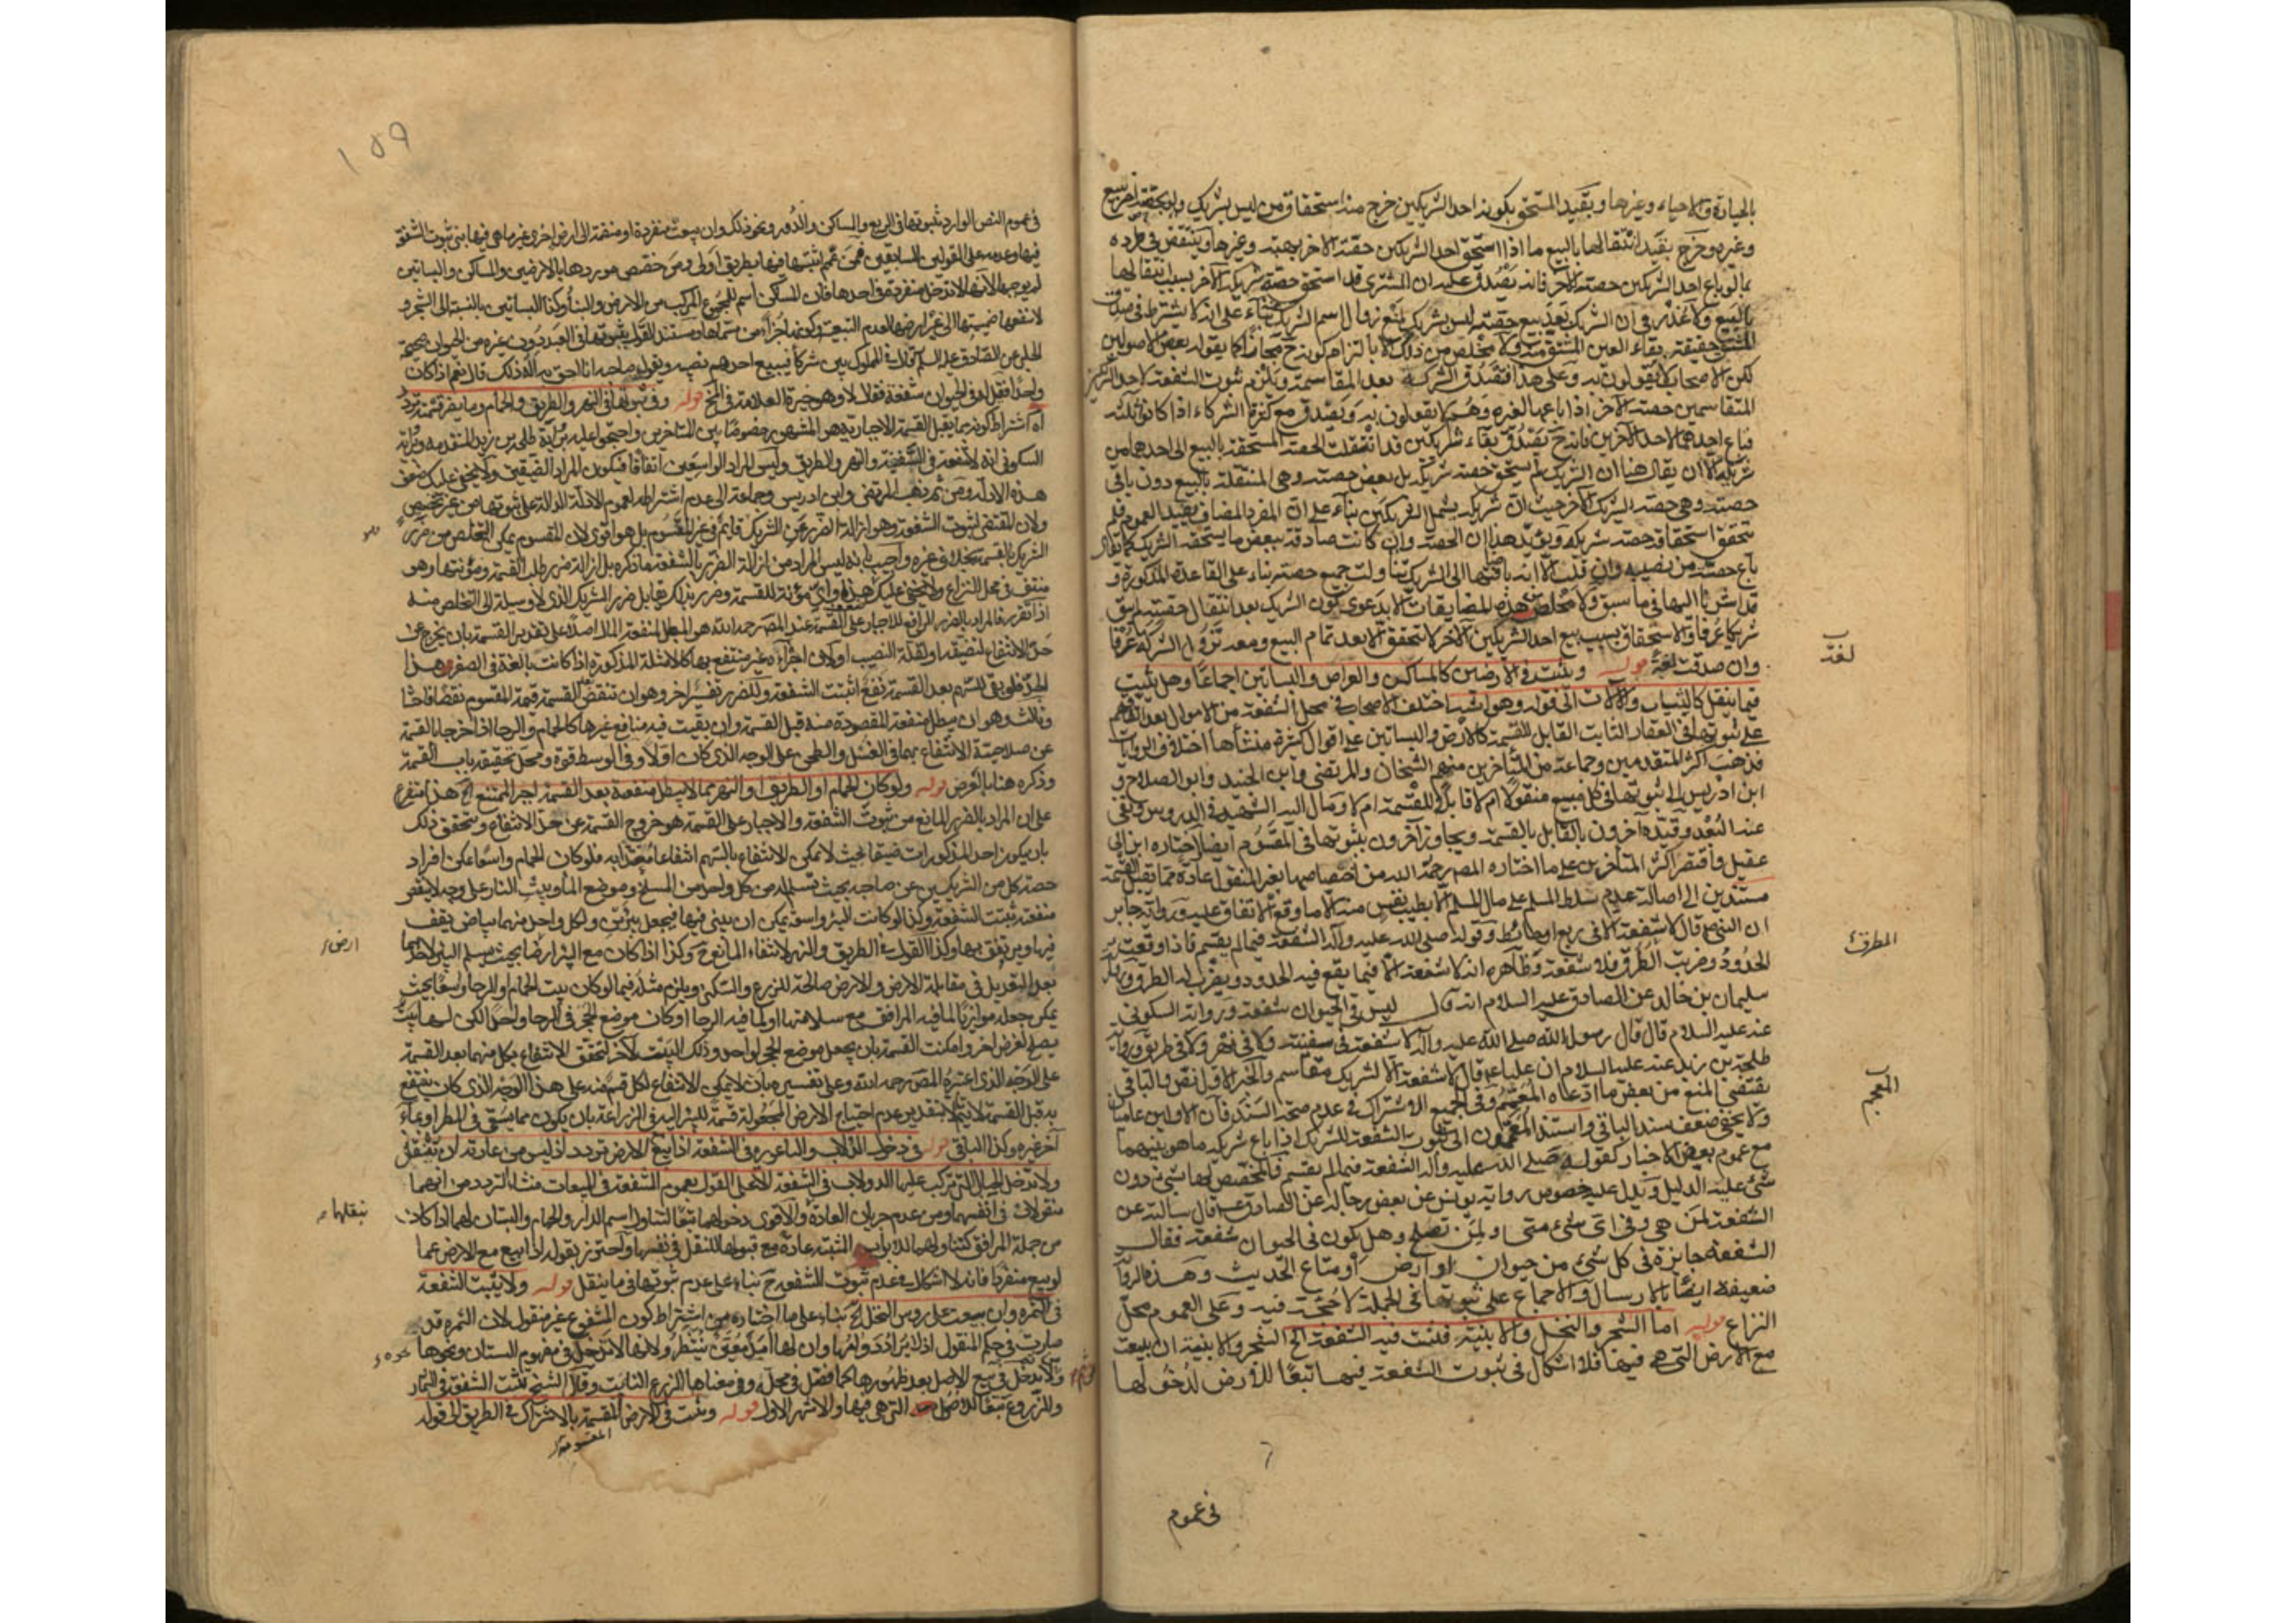 بالحيازة والاحياء وغيرها وبقيد المستحق بكونه احد الشريكين خرج منه استحقاق من ليس بشريك
وغيره وخرج بقيد انتقالها بالبيع ما اذا استحق احد الشريكين حصة الآخر بهبة وغيرها وينتقض في طرده
بما لو باع احد الشريكين حصته لآخر فانه يصدق عليه ان المشترى قد استحق حصة شريك الآخر بسبب انتقالها
بالبيع ولا عذر في ان الشريك بعد بيع حصته ليس بشريك لمنع زوال اسم الشريك بناء على انه لا يشترط في صدق
المشتق حقيقة بقاء المعنى المشتق منه ولا مخلص من ذلك الا بالتزام كونه ح مجازا كما يقوله بعض الاصوليين
لكن الاصحاب لا يقولون به وعلى هذا فتصدق الشركة بعد المقاسمة ويلزم ثبوت الشفعة لاحد
المتقاسمين حصة الآخر اذا باعها لغيره وهم لا يقولون به ويصدق مع كثرة الشركاء اذا كانوا ثلثة
فباع احدهم لاحد الآخرين فانه ح يصدق بقاء شريكين قد انتقلت الحصة المستحقة بالبيع الى احدهما من
شريكه الا ان يقال هنا ان الشريك لم يستحق حصة شريكه بل بعض حصته وهي المنتقلة بالبيع دون باقي
حصته وهي حصة الشريك الآخر حيث ان شريكه يشمل الشريكين بناء على ان المفرد المضاف يفيد العموم فلم
يتحقق استحقاقه حصة شريكه ويؤيد هذا ان الحصة وان كانت صادقة ببعض ما يستحقه الشريك كما يقال
باع حصته من نصيبه وان قلت الا انه باضافتها الى الشريك تناولت جميع حصته بناء على القاعدة المذكورة و
قد اشرنا اليها في ما سبق ولا مخلص من هذه المضايقات الا بدعوى كون الشريك بعد انتقال حقيته لم يبق
شريكا عرفا والاستحقاق بسبب بيع احد الشريكين الآخر لا يتحقق الا بعد تمام البيع ومعه تزول الشركة عرفا
وان صدقت لغة قوله وتثبت في الارضين كالمساكن والعراص والبساتين اجماعا وهل تثبت
فيما ينقل كالثياب والآلات الى قوله وهو اشبه اختلف الاصحاب في محل الشفعة من الاموال بعد اتفاقهم
على ثبوتها في العقار الثابت القابل للقسمة كالارض والبساتين على اقوال كثيرة منشأها اختلاف الروايات
فذهب اكثر المتقدمين وجماعة من المتأخرين منهم الشيخان والمرتضى وابن الجنيد وابو الصلاح و
ابن ادريس الى ثبوتها في كل مبيع منقولا ام لا قابلا للقسمة ام لا ومال اليه الشهيد في الدروس ونفى
عنه البعد وقيده آخرون بالقابل بالقسمة وتجاوز آخرون بثبوتها في المقسوم ايضا اختاره ابن ابي
عقيل واقتصر اكثر المتأخرين على ما اختاره المصر رحمه الله من اختصاصها بغير المنقول عادة مما يقبل القسمة
مستندين الى اصالة عدم تسلط المسلم على مال المسلم الا بطيب نفس منه الا ما وقع الاتفاق عليه ورواية جابر
ان النبي ص قال لا شفعة الا في ربع او حائط وقوله صلى الله عليه وآله الشفعة فيما لم يقسم فاذا وقعت
الحدود وضربت الطرق فلا شفعة وظاهره انه لا شفعة الا فيما يقع فيه الحدود ويضرب له الطرق
سليمان بن خالد عن الصادق عليه السلام انه قال ليس في الحيوان شفعة ورواية السكوني
عنه عليه السلام قال قال رسول الله صلى الله عليه وآله لا شفعة في سفينة ولا في نهر ولا في طريق ورواية
طلحة بن زيد عنه عليه السلام ان عليا ع قال لا شفعة الا لشريك مقاسم والخبر الاول نقض والباقي
يقتضي المنع من بعض ما ادعاه المعمم وفي الجميع الاشتراك في عدم صحة السند فان الاولين عاميان
ولا يخفى ضعف سند الباقي واستند المعممون الى ثبوت الشفعة للشريك اذا باع شريكه ما هو بينهما
مع عموم بعض الاخبار كقوله صلى الله عليه وآله الشفعة فيما لم يقسم فالمخصص لها بشئ دون
شئ عليه الدليل ويدل عليه خصوص رواية يونس عن بعض رجاله عن الصادق ع قال سالته عن
الشفعة لمن هي وفي اى شئ متى ولمن تصلح وهل يكون في الحيوان شفعة فقال
الشفعة جايزة في كل شئ من حيوان او ارض او متاع الحديث وهذه الرواية
ضعيفة ايضا بالارسال والاجماع على ثبوتها في الجملة لا حجة فيه وعلى العموم محل
النزاع قوله اما الشجر والنخل والابنية فتثبت فيه الشفعة الخ الشجر والابنية ان بيعت
مع الارض التى هي فيها فلا اشكال في ثبوت الشفعة فيها تبعا للارض لدخولها
في عموم
لغة
المعجم
١٥٩
في عموم النص الوارد بثبوتها في الربع والمساكن والدور ونحو ذلك وان بيعت منفردة او منضمة الى ارض اخرى غير ما هي فيها بنى ثبوت الشفعة
فيها وعدمه على القولين السابقين فمن عمم اثبتها فيها بطريق اولى ومن خصص موردها بالارضين والمساكن والبساتين
لم يوجبها لانها لا تدخل منفردة في احدها فان المسكن اسم للمجموع المركب من الارض والبناء وكذا البساتين بالنسبة الى الشجر و
لا ينفعها ضميمتها الى غير ارضها لعدم التبعية وكونها جزءا من مسماها ومستند القول بثبوتها في العبد دون غيره من الحيوان صحيحة
الحلبي عن الصادق عليه السلم قال في المملوك بين شركاء فيبيع احدهم نصيبه ويقول صاحبه انا احق به اله ذلك قال نعم اذا كان
واحدا فقيل له في الحيوان شفعة فقال لا وهو خيرة العلامة في المخ قوله وفي ثبوتها في النهر والطريق والحمام وما يضر قسمته تردد
اه اشتراط كونه مما يقبل القسمة الاجبارية هو المشهور خصوصا بين المتأخرين واحتجوا عليه برواية طلحة بن زيد المتقدمة ورواية
السكوني انه لا شفعة في السفينة والنهر والطريق وليس المراد الواسعين اتفاقا فيكون المراد الضيقين ولا يخفى عليك ضعف
هذه الادلة ومن ثم ذهب المرتضى وابن ادريس وجماعة الى عدم اشتراطه لعموم الادلة الدالة على ثبوتها من غير تخصيص
ولان المقتضى لثبوت الشفعة وهو ازالة الضرر عن الشريك قائم في غير المقسوم بل هو اقوى لان المقسوم يمكن التخلص من ضرر
الشريك بالقسمة بخلاف غيره واجيب بانه ليس المراد من ازالة الضرر بالشفعة ما ذكره بل ازالة ضرر طلب القسمة ومؤنتها وهو
منتف في محل النزاع ولا يخفى عليك ضعف هذا واى مؤنة للقسمة وضرر بذلك يقابل ضرر الشريك الذى لا وسيلة الى التخلص منه
اذا تقرر فالمراد بالضرر الرافع للاجبار على القسمة عند المصر رحمه الله هو المبطل لمنفعة المال اصلا على تقدير القسمة بان يخرج عن
حد الانتفاع لضيقه او لقلة النصيب او لان اجزاءه غير منتفع بها كالامثلة المذكورة اذا كانت بالغة في الصغر هذا
الحد فلو بقي للسهم بعد القسمة نفع اثبتت الشفعة وللضرر تفسير آخر وهو ان تنقص القسمة قيمة المقسوم نقصا فاحشا
وثالث وهو ان يبطل منفعة المقصودة منه قبل القسمة وان بقيت فيه منافع غيرها كالحمام والرحا اذا خرجا بالقسمة
عن صلاحية الانتفاع بهما في الغسل والطحن على الوجه الذى كان اولا وفي الوسط قوة ومحل تحقيقه باب القسمة
وذكره هنا بالعرض قوله ولو كان الحمام او الطريق او النهر مما لا يبطل منفعته بعد القسمة اجبر الممتنع الخ هذا متفرع
على ان المراد بالضرر المانع من ثبوت الشفعة والاجبار على القسمة هو خروج القسمة عن حد الانتفاع ويتحقق ذلك
بان يكون احد المذكورات ضيقا بحيث لا يمكن الانتفاع بالسهم انتفاعا معتدا به فلو كان الحمام واسعا يمكن افراد
حصة كل من الشريكين عن صاحبه بحيث تسلم لكل واحد من المسلخ وموضع الماء وبيت النار على وجه لا يتغير
منفعته ثبتت الشفعة وكذا لو كانت البئر واسعة يمكن ان يبنى فيها فيجعل بئرين ولكل واحد منهما بياض يقف
فيه ويرتفق بها وكذا القول في الطريق والنهر لانتفاء المانع ح وكذا اذا كان مع البئر ارض بحيث يسلم البئر لاحدهما
بعد التعديل في مقابلة الارض والارض صالحة للزرع والسكنى ويلزم مثله فيما لو كان بيت الحمام والرحا واسعا بحيث
يمكن جعله موازيا لما فيه المرافق مع سلامتها او لما فيه الرحا او كان موضع الحجر في الرحا واحدا لكن لها بيت
يصلح لغرض آخر وامكنت القسمة بان يجعل موضع الحجر لواحد وذلك البيت لآخر لتحقق الانتفاع بكل منهما بعد القسمة
على الوجه الذى اعتبره المصر رحمه الله وعلى تفسيره بان لا يمكن الانتفاع لكل قسم منه على هذا الوجه الذى كان ينتفع
به قبل القسمة لا يتم الا بتقدير عدم احتياج الارض المجعولة قسمة للبئر اليه في الزراعة بان يكون مما يسقى في المطر او بماء
آخر غيره وكذا الباقي قوله في دخول الدولاب والناعورة في الشفعة اذا بيع مع الارض تردد اذ ليس من عادته ان ينقل
ولا تدخل الحبال التى تركب عليها الدولاب في الشفعة الا على القول بعموم الشفعة في المبيعات منشاء التردد من انهما
منقولان في انفسهما ومن عدم جريان العادة والاقوى دخولهما تبعا لتناول اسم الدار والحمام والبستان لهما اذا كان
من جملة المرافق كتناولهما للابواب المثبتة عادة مع قبولها للنقل في نفسها واحترز بقوله اذا بيع مع الارض عما
لو بيع منفردا فانه لا اشكال في عدم ثبوت الشفعة ح بناء على عدم ثبوتها في ما ينقل قوله ولا يثبت الشفعة
في الثمرة وان بيعت على رؤس النخل الخ بناء على ما اختاره من اشتراط كون المشفوع غير منقول لان الثمرة قد
صارت في حكم المنقول اذ لا يراد دوامها وان لها امد معين ينتظر ولانها لا تدخل في مفهوم البستان ونحوها
ولا تدخل في بيع الاصل بعد ظهورها كما فصل في محله وفي معناها الزرع الثابت وقال الشيخ تثبت الشفعة في الثمار
والزروع تبعا للاصل التى هي فيها والاشهر الاول قوله وتثبت في الارض المقسمة بالاشتراك في الطريق الى قوله
ارض
ينقلها
المقسومة